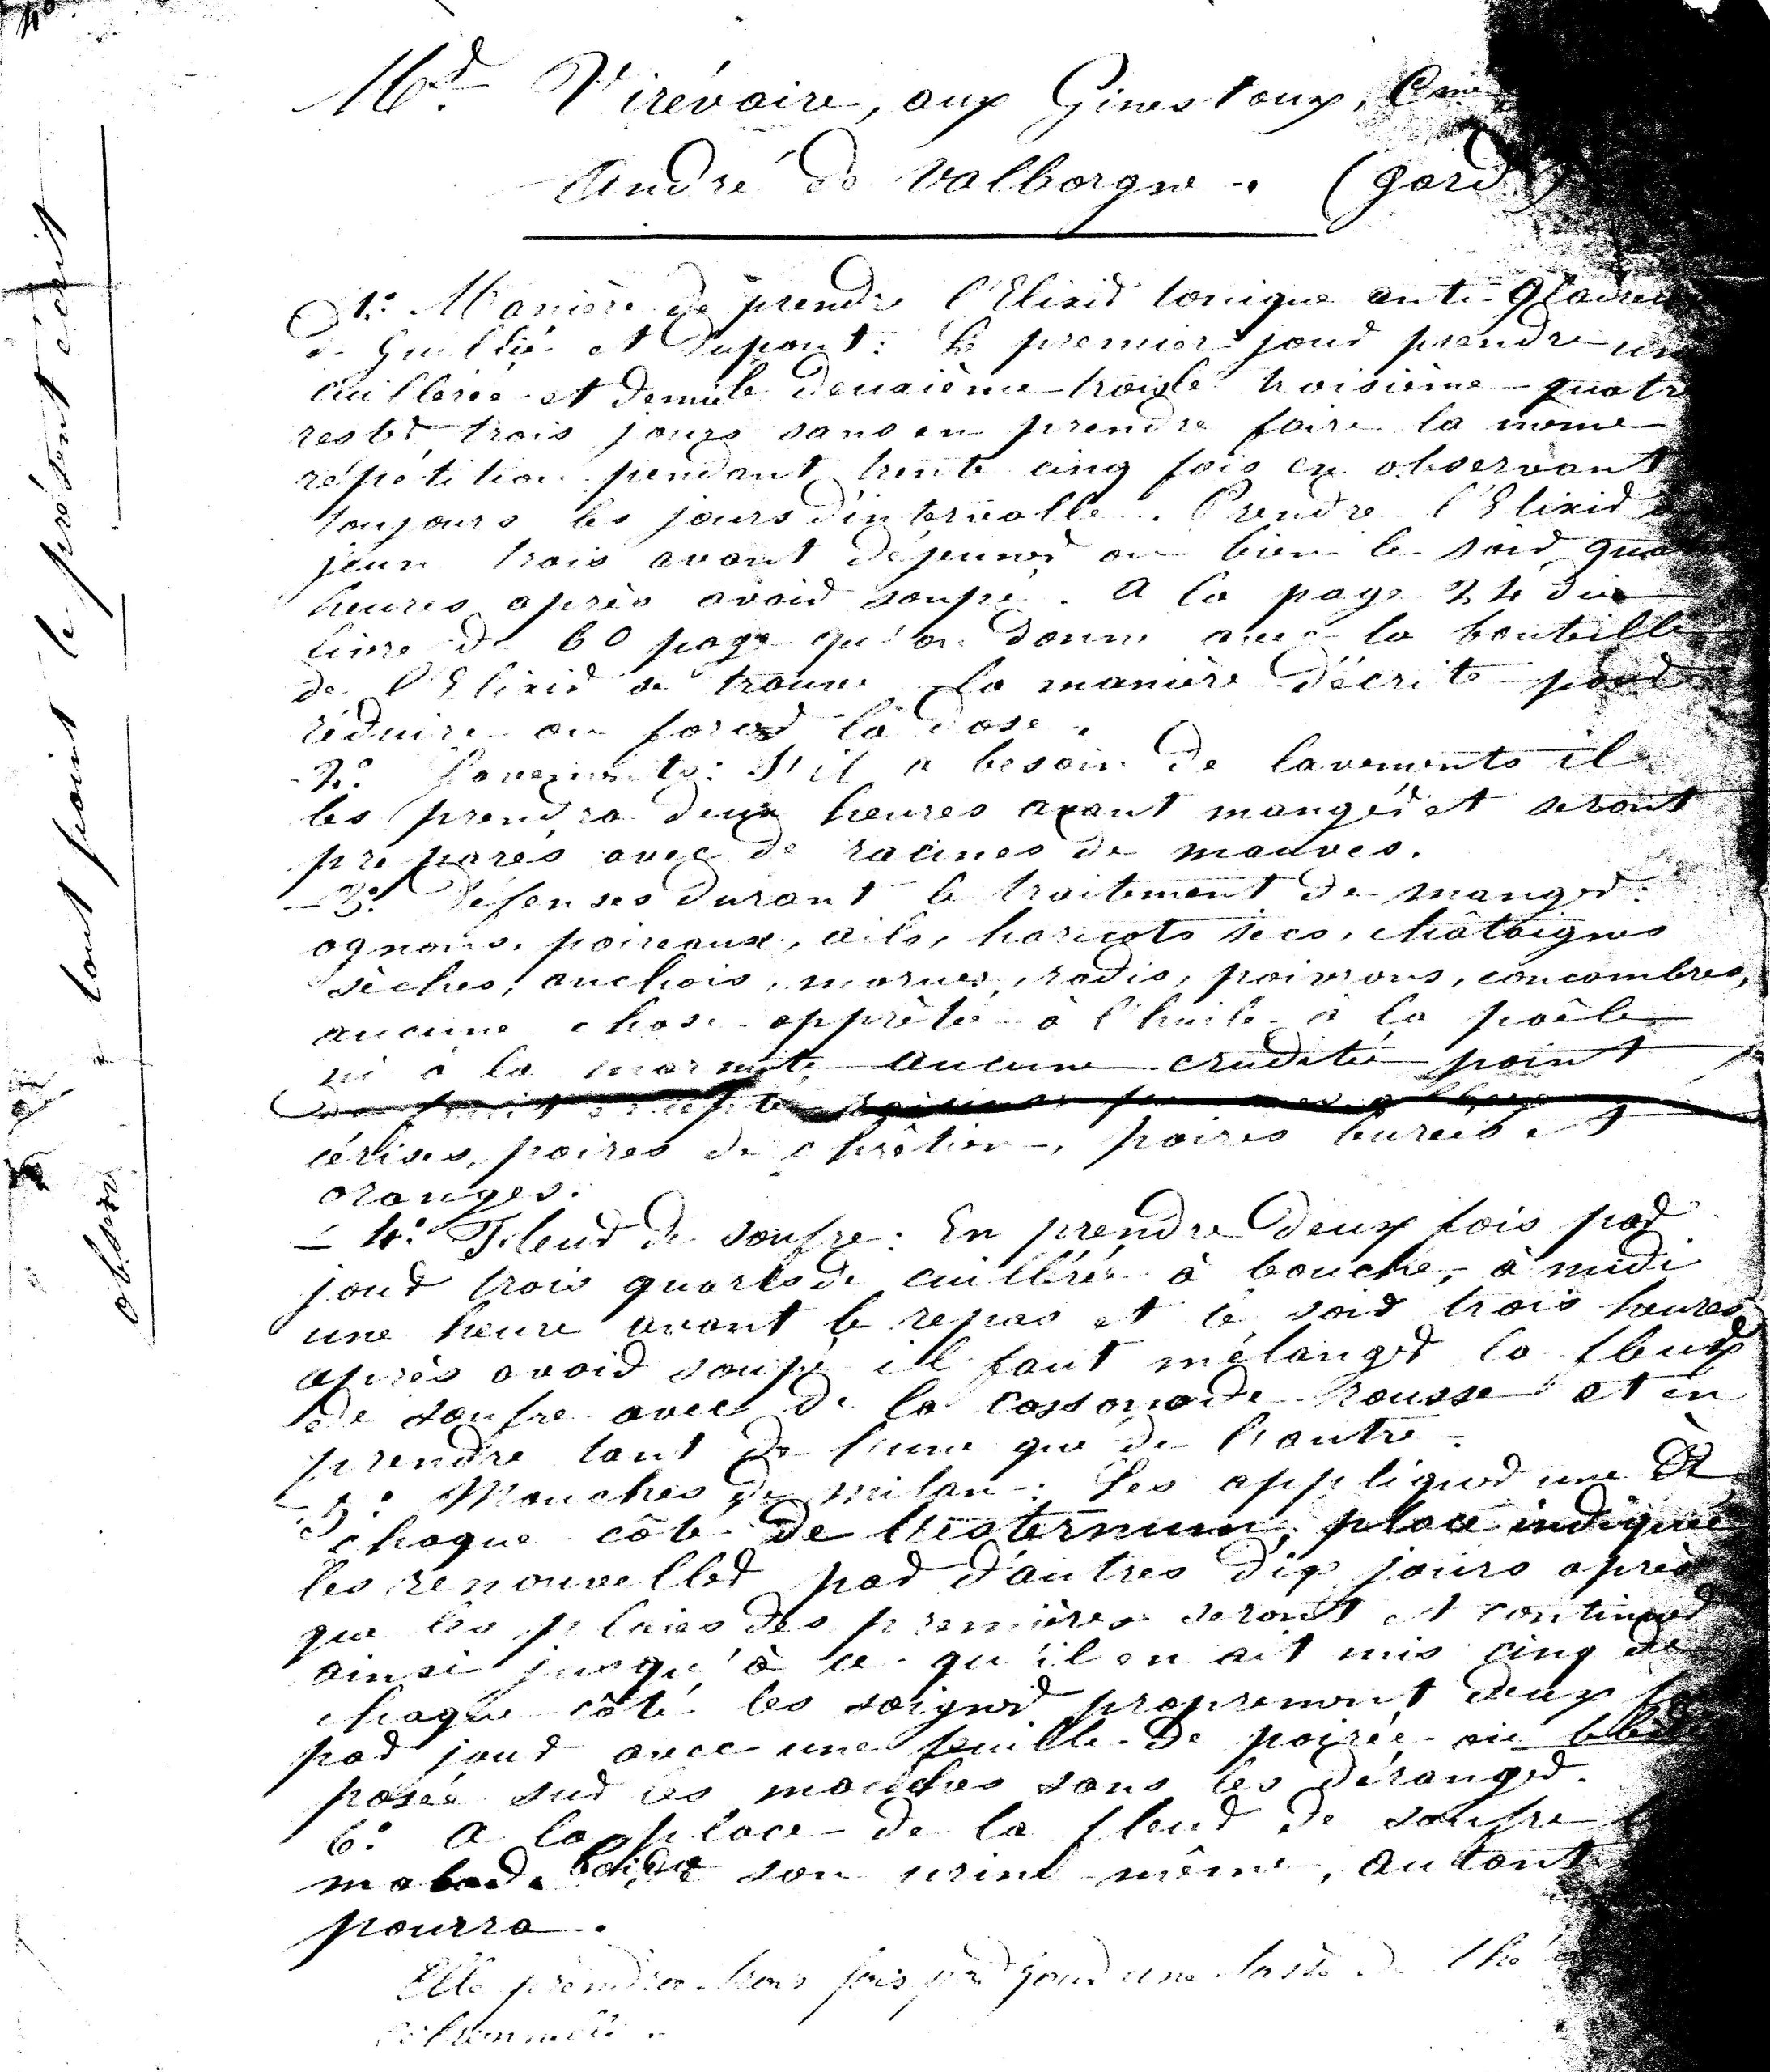 Md. Virévaire, aux Ginestoux, Cne
André de Valborgne. (Gard)
1º. Manière de prendre l'Elixir tonique anti-Glaireux
de Guillié et Dupont: le premier jour prendre une
cuillerée et demie le deuxième trois le troisième quatre
rester trois jours sans en prendre faire la même
répétition pendant trente cinq fois en observant
toujours les jours d'intervalle. Prendre l'Elixir
jeun trois avant déjeuner ou bien le soir quatre
heures après avoir soupé. A la page 24 du
livre de 60 page qu'on donne avec la bouteille
de l'Elixir se trouve la manière décrite pour
réduire ou forcer la dose.
- 2º. Lavements: S'il a besoin de lavements il
les prendra deux heures avant manger et seront
préparés avec de racines de mauves.
- 3º. Défenses durant le traitement de manger:
ognons, poireaux, ails, haricots secs, châtaignes
sèches, anchois, morues, radis, poivrons, concombres,
aucune chose apprêtée à l'huile à la poêle
ni à la marmite aucune crudité point
de fruit excepté raisins
cérises, poires de chrêtien, poires burés et
oranges.
- 4º. Fleur de soufre: En prendre deux fois par
jour trois quarts de cuillérée à bouche, à midi
une heure avant le repas et le soir trois heures
après avoir soupé il faut mélanger la fleur
de soufre avec de la cassonade rousse et en
prendre tant de l'une que de l'autre.
- 5º. Mouches de milan: Les appliquer une de
chaque côté de l'esternum, place indiquée
les renouveller par d'autres dix jours après
que les plaies des premières seront et continuer
ainsi jusqu'à ce qu'il en ait mis cinq de
chaque côté les soigner proprement deux
par jour avec une feuille de poirée ou
posée sur les mouches sans les déranger.
6º. A la place de la fleur de soufre
malade boira son urine même, autant
pourra.
Elle prendra trois fois par jour une tasse de thé
observer tout point le présent écrit